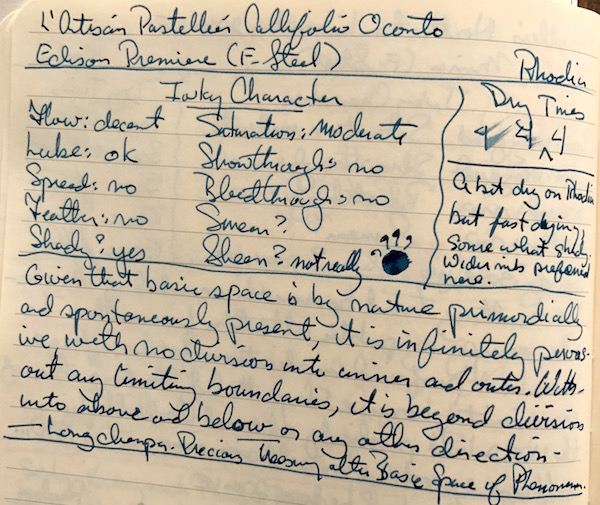 L'Artisan Pastellier Callifolio Oconto
Edison Premiere (F-Steel)
Rhodia
Inky Character
Flow: decent
Saturation: moderate
Lube: ok
Showthrough: no
Spread: no
Bleedthrough: no
Feather: no
Smear?
Shady? yes
Sheen? not really
Dry Times
4
4
A bit dry on Rhodia
but fast drying,
Somewhat shady.
Wider nibs preferred
here.
Given that basic space is by nature primordially
and spontaneously present, it is infinitely pervas-
ive, with no division into inner and outer. With-
out any limiting boundaries, it is beyond division
into above and below or any other direction-
— Longchenpa. Precious Treasury of the Basic Space of Phenomena.